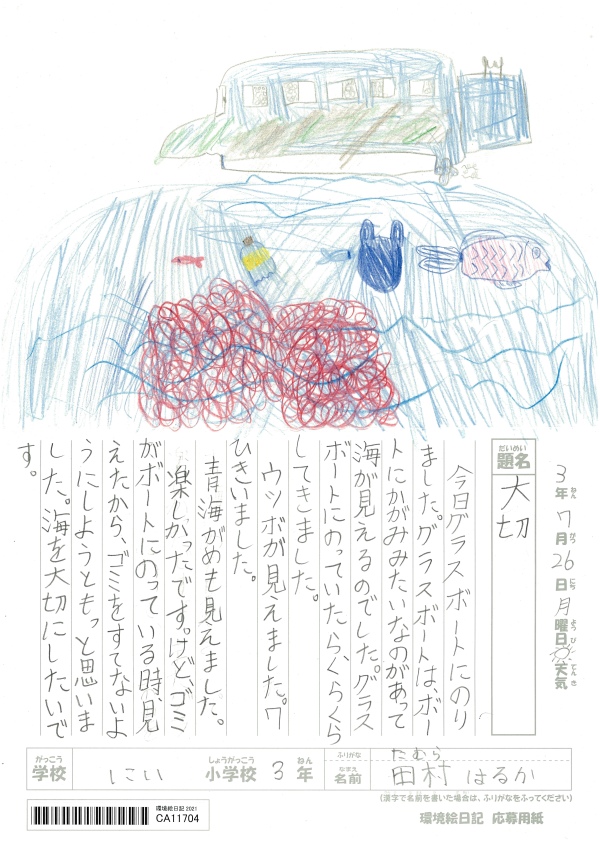 3年ねん7月がつ26日にち月曜日ようび天気てんき
だいめい
題名
大切
今日グラスボートにのり
ました。グラスボートは、ボー
トにかがみみたいなのがあって
海が見えるのでした。グラス
ボートにのっていたら、くらくら
してきました。
ウツボが見えました。7
ひきいました。
青海がめも見えました。
楽しかったです。けど、ゴミ
がボートにのっている時、見
えたから、ゴミをすてないよ
うにしようともっと思いま
した。海を大切にしたいで
す。
がっこう しょうがっこう ねん ふりがな たむら
学校 にい 小学校 3年 なまえ 名前 田村 はるか
(漢字で名前を書いた場合は、ふりがなをふってください)
環境絵日記 2021
CA11704
環境絵日記 応募用紙